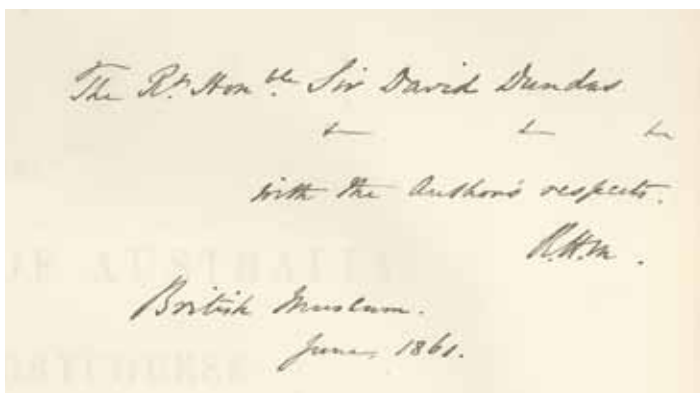 The Rt. Honble. Sir David Dundas
&c &c &c
with the Author's respects.
R.H.M.
British Museum.
June, 1861.